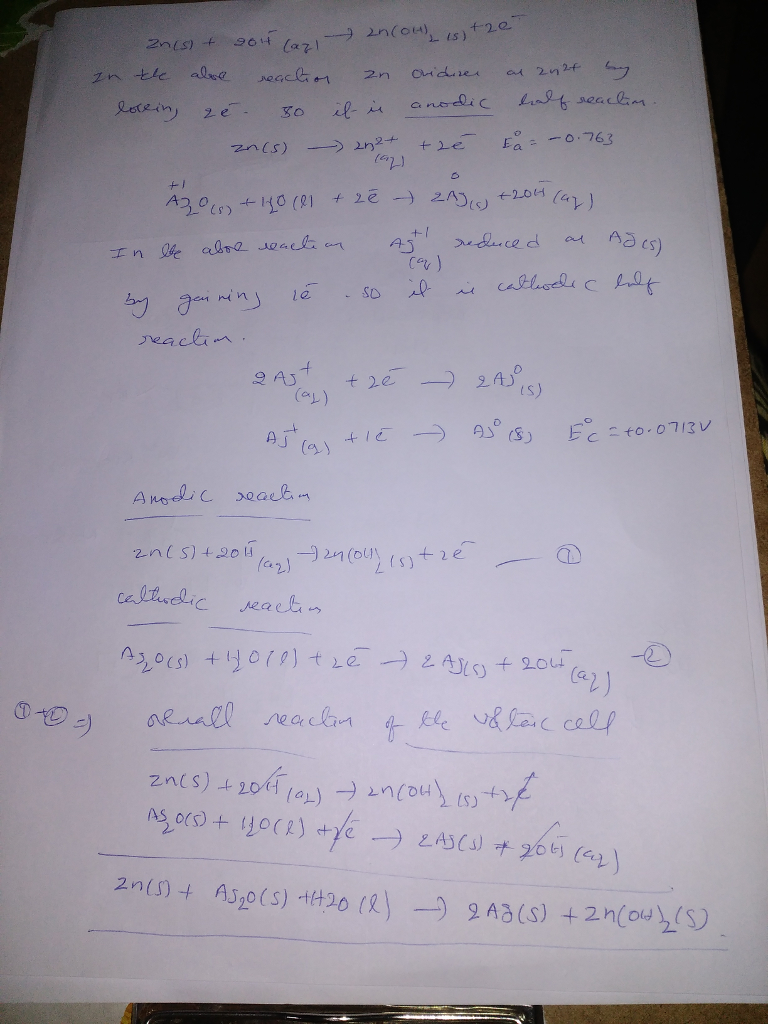 Zn(s) + 2OH⁻(aq) → Zn(OH)₂(s) + 2e⁻
In the above reaction Zn oxidizes as Zn2+ by
loseing 2e⁻. So it is anodic half reaction.
Zn(s) → Zn²⁺(aq) + 2e⁻ E°a = -0.763
+1 0
Ag₂O(s) + H₂O(l) + 2e⁻ → 2Ag(s) + 2OH⁻(aq)
In the above reaction Ag⁺¹(aq) reduced as Ag(s)
by gaining 1e⁻. so it is cathodic half
reaction.
2Ag⁺(aq) + 2e⁻ → 2Ag⁰(s)
Ag⁺(aq) + 1e⁻ → Ag⁰(s) E°c = +0.0713V
Anodic reaction
Zn(s) + 2OH⁻(aq) → Zn(OH)₂(s) + 2e⁻ — ①
cathodic reaction
Ag₂O(s) + H₂O(l) + 2e⁻ → 2Ag(s) + 2OH⁻(aq) — ②
① + ② ⇒ overall reaction of the voltaic cell
Zn(s) + 2OH⁻(aq) → Zn(OH)₂(s) + 2e⁻
Ag₂O(s) + H₂O(l) + 2e⁻ → 2Ag(s) + 2OH⁻(aq)
Zn(s) + Ag₂O(s) + H2O(l) → 2Ag(s) + Zn(OH)₂(s).